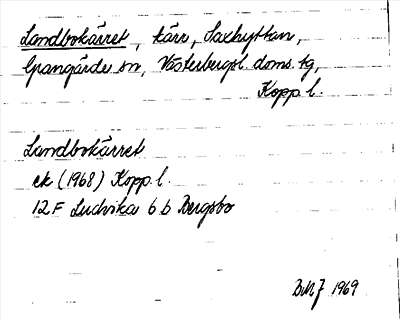 Landbokärret, kärr, Saxhyttan,
Grangärde sn, Västerbergsl. doms. tg,
Kopp. l.
Landbokärret
ek (1968) Kopp. l.
12F Ludvika 6 b Bergsbo
BMJ 1969